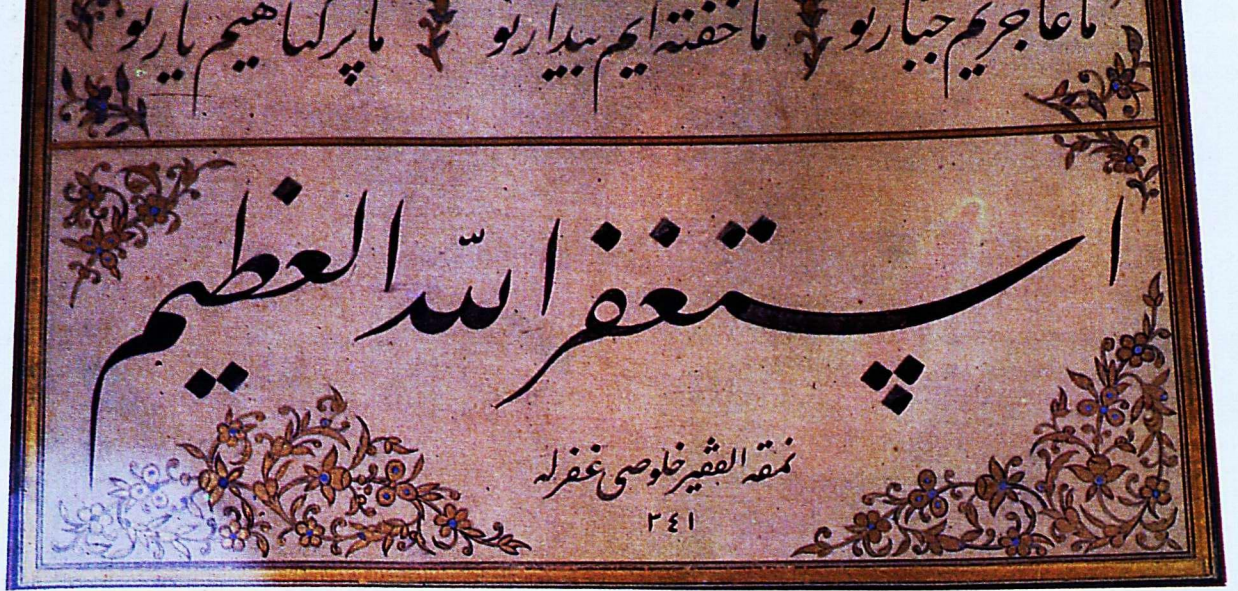 ما عاجزیم جبار تو ما خفته ایم بیدار تو ما پر گناهیم یار تو
استغفر الله العظیم
نمقه الفقیر خلوصی غفرله
٢٤١